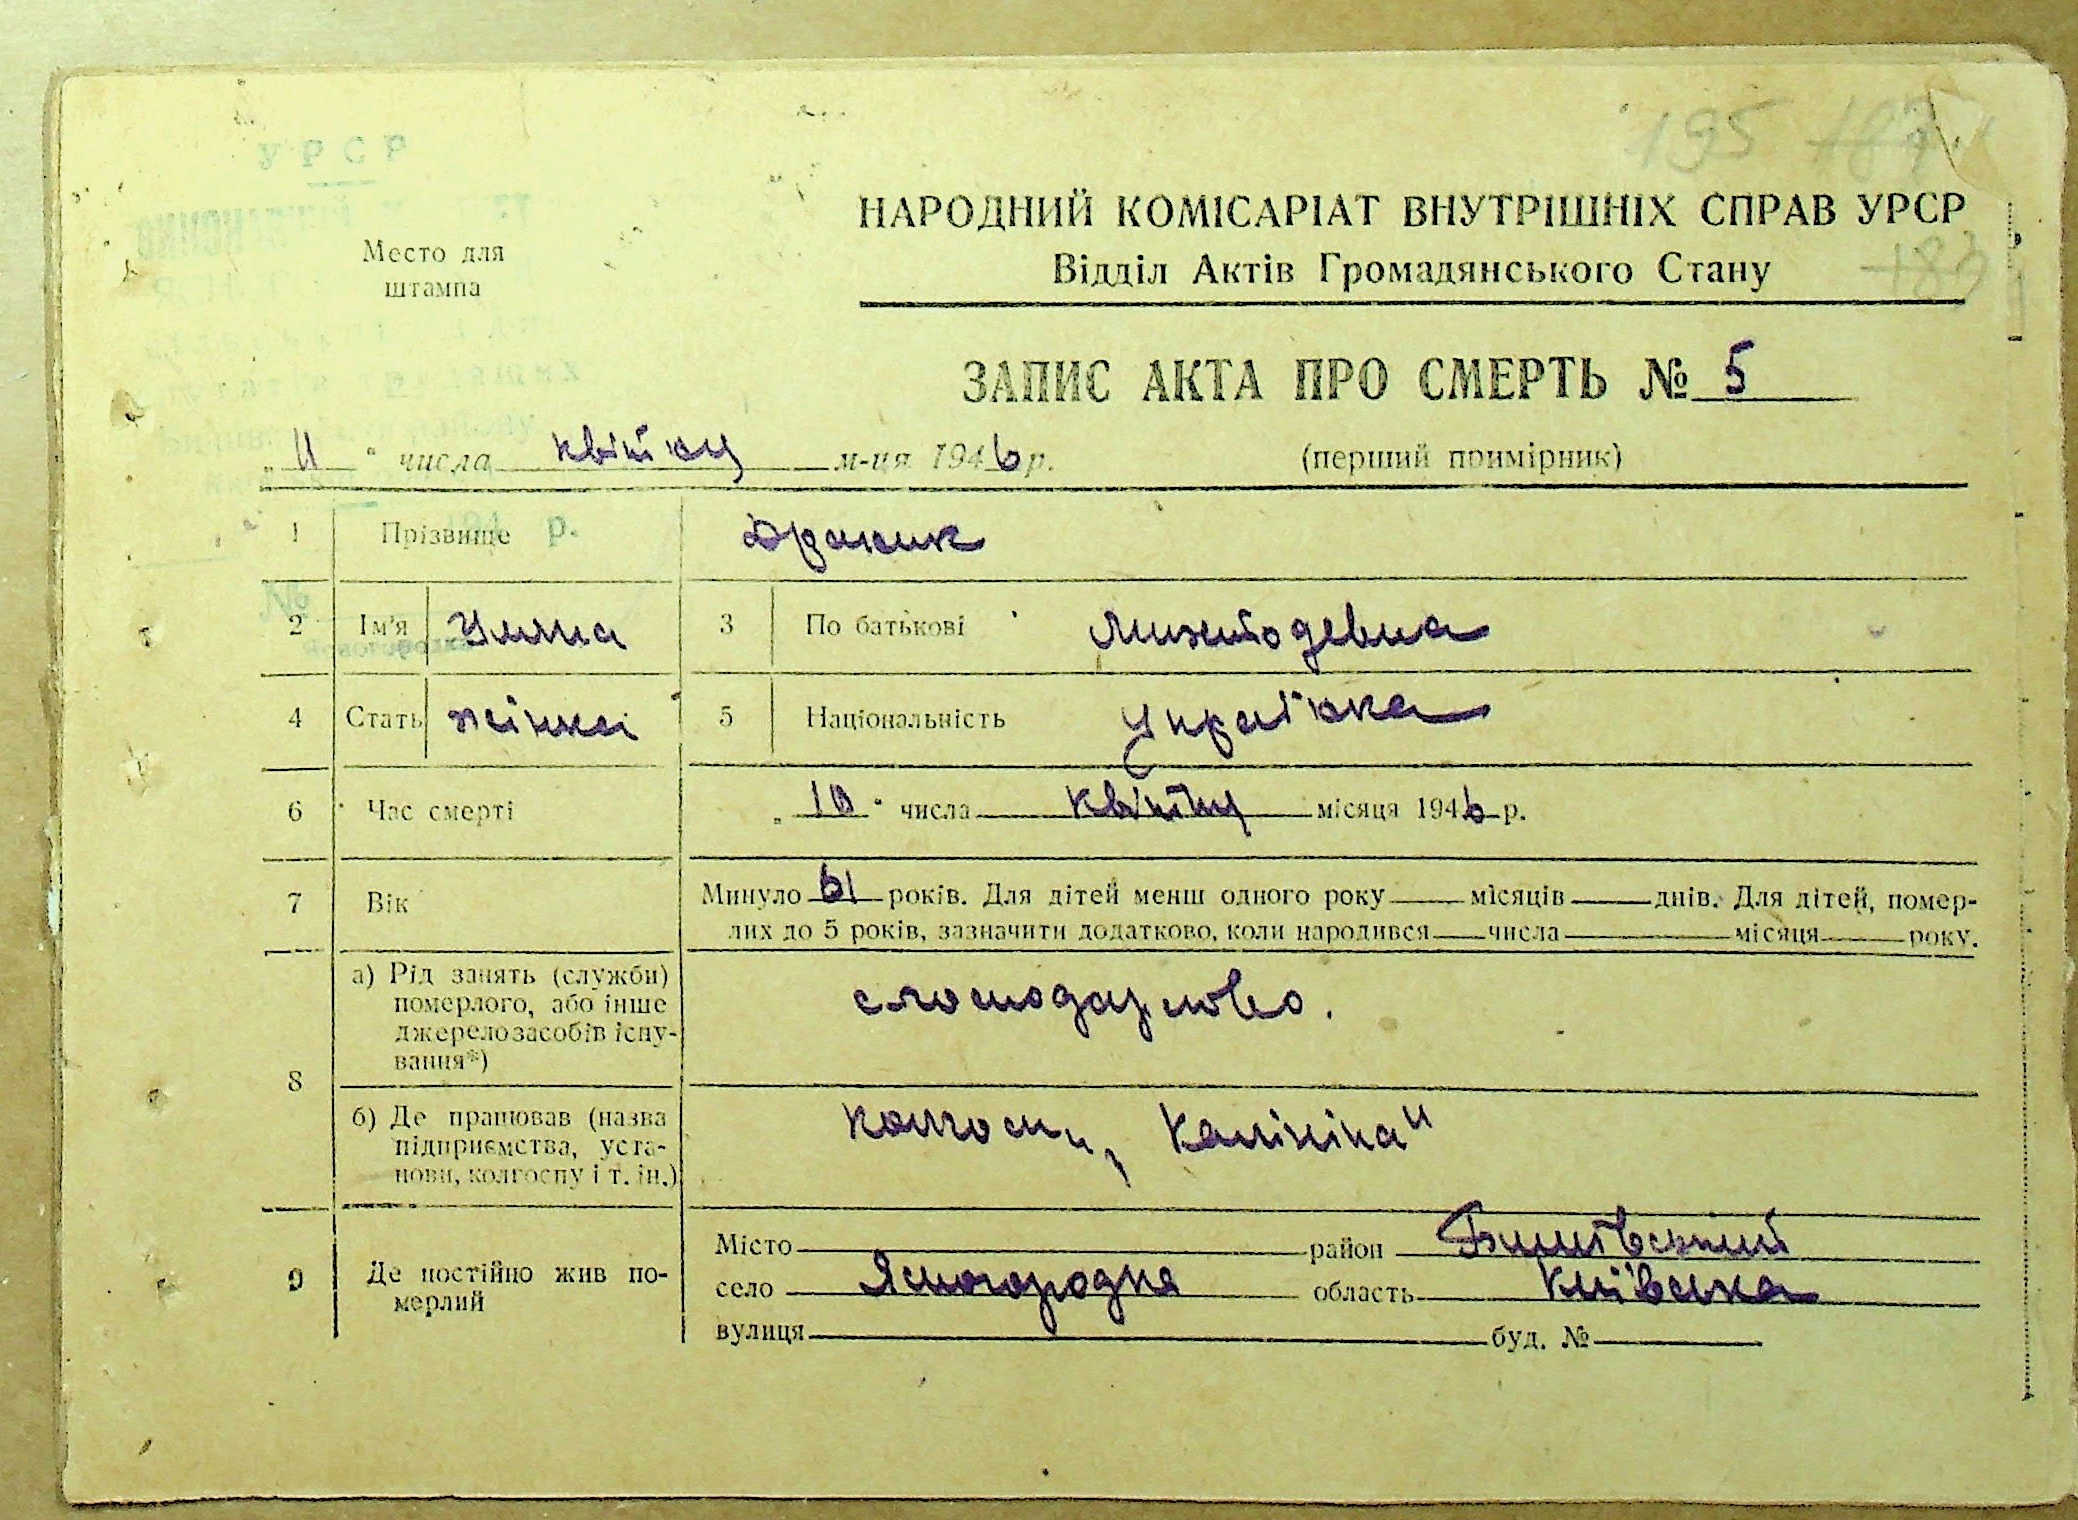 195 187
У Р С Р
НАРОДНИЙ КОМІСАРІАТ ВНУТРІШНІХ СПРАВ УРСР
Место для
штампа
Відділ Актів Громадянського Стану
183
ЗАПИС АКТА ПРО СМЕРТЬ № 5
„ 11 " числа квітня м-ця 1946 р. (перший примірник)
1 Прізвище р.
№
2 Ім'я Уляна 3 По батькові
4 Стать жінка 5 Національність Українка
6 Час смерті „ 10 " числа квітня місяця 1946 р.
7 Вік Минуло 61 років. Для дітей менш одного року місяців днів. Для дітей, помер-
лих до 5 років, зазначити додатково, коли народився числа місяця року.
8 а) Рід занять (служби)
померлого, або інше
джерело засобів існу-
вання*)
с-господарство.
б) Де працював (назва
підприємства, уста-
нови, колгоспу і т. ін.)
колгосп „Калініна"
9 Де постійно жив по-
мерлий
Місто район Бишівський
село Ясногородка область Київська
вулиця буд. №